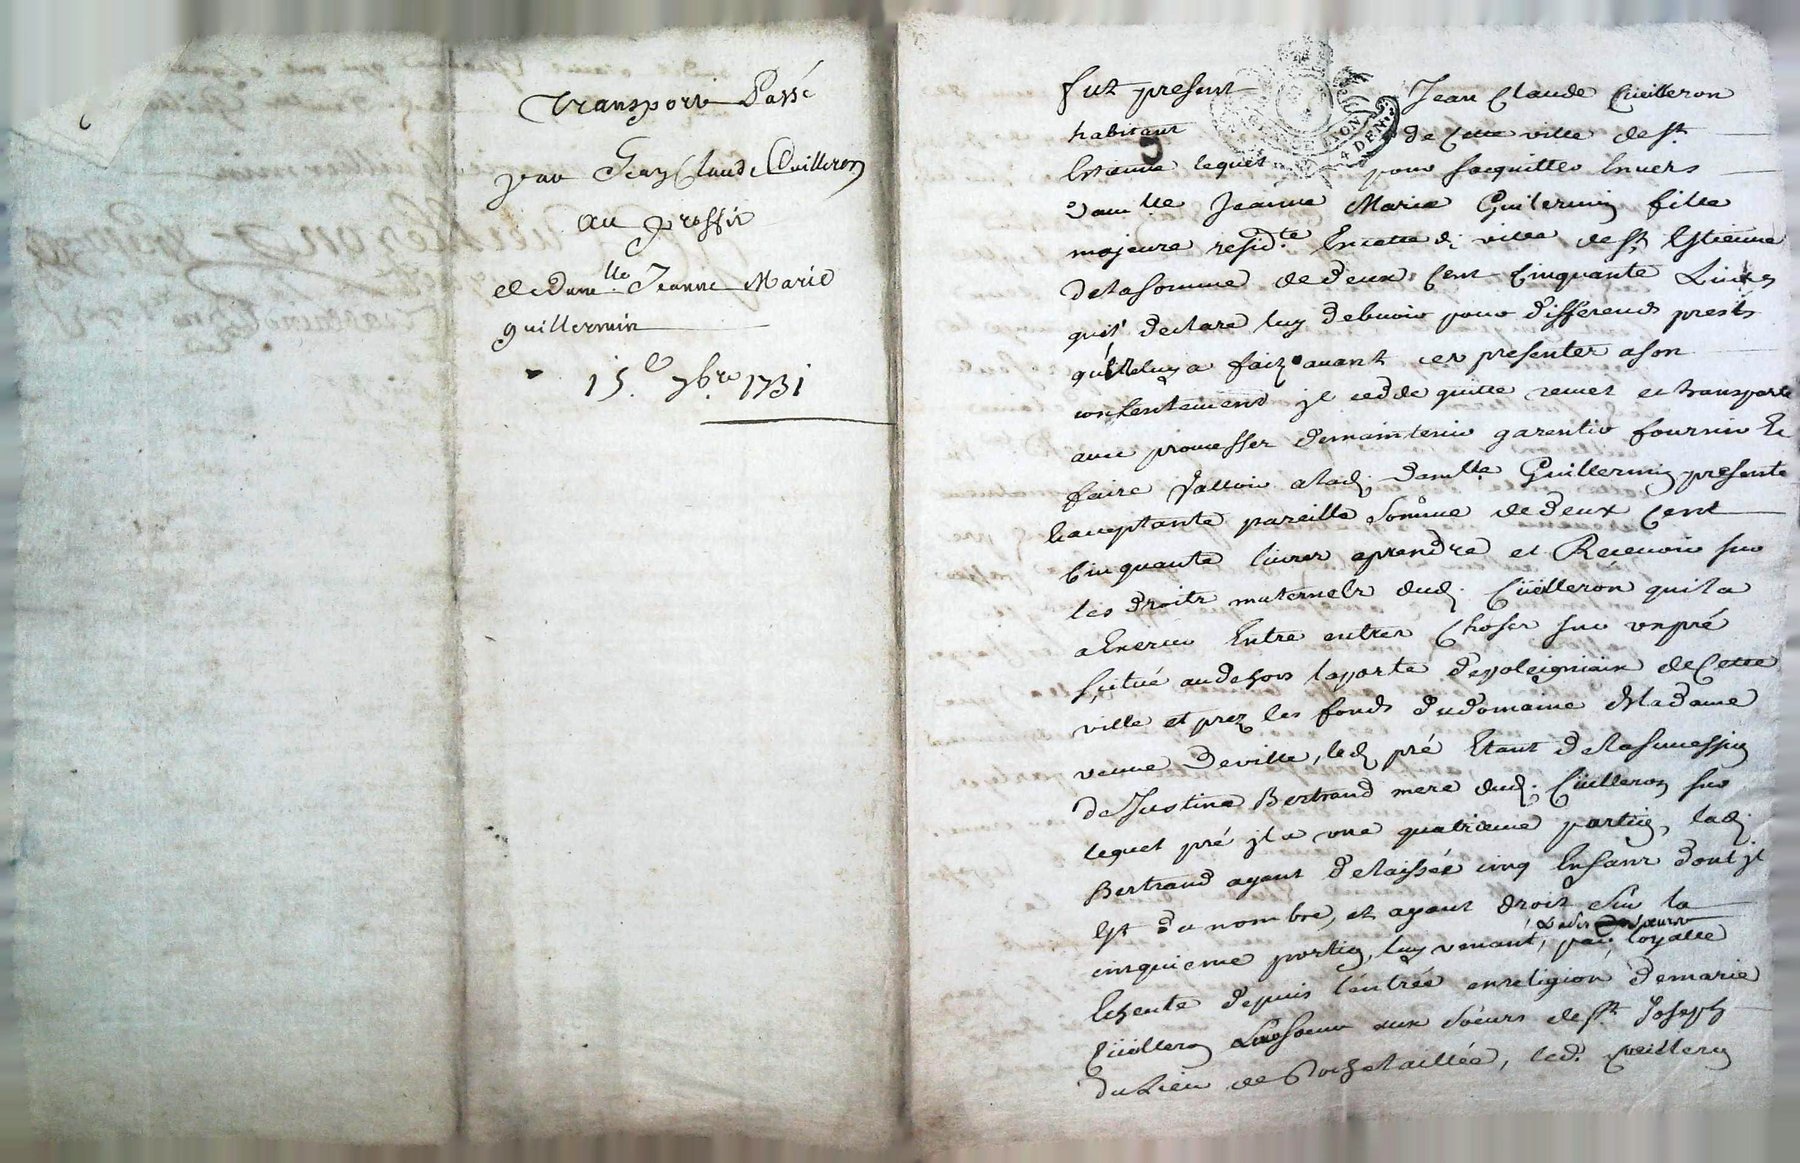 Transport Passé
par Jean Claude Cuilleron
au proffit
de dam.lle Jeanne Marie
guillermin
15.e 7bre 1731
fut present Jean Claude Cüilleron
habitant de Cette ville de St.
Estienne lequel pour sacquitter Envers
dam.lle Jeanne Marie Guilermin fille
majeure resid.te En cette d. ville de St. Estienne
de la somme de deux Cent Cinquante Livres
quil declare luy debvoir pour differends prests
quelle luy a fait avant ces presentes a son
contentement jl cedde quitte remet et transporte
avec promesses de maintenir garentir fournir Et
faire Valloir a lad. dam.lle Guillermin presente
Eacceptante pareille Somme de deux Cent
Cinquante livres aprendre et Recevoir sur
les droits maternels dud. Cüilleron quil a
a Exercer Entre autres Choses sur un pré
scitué au dehors la porte de poleigniaix de Cette
ville et prez les fonds du domaine de Madame
veuve Deville, led. pré Etant de la sucession
de Justine Bertrand mere dud. Cüilleron sur
lequel pré jl a une quatrieme partie, lad.
Bertrand ayant delaissée cinq Enfans dont jl
Est du nombre, et ayant droit sur la
cinquieme portion, luy venant, par loyalle
Echeute depuis l'entrée en religion de marie
Cüilleron sa soeur aux Soeurs de St. Joseph
du Lieu de Rochetaillée, led. Cueilleron
4 DEN